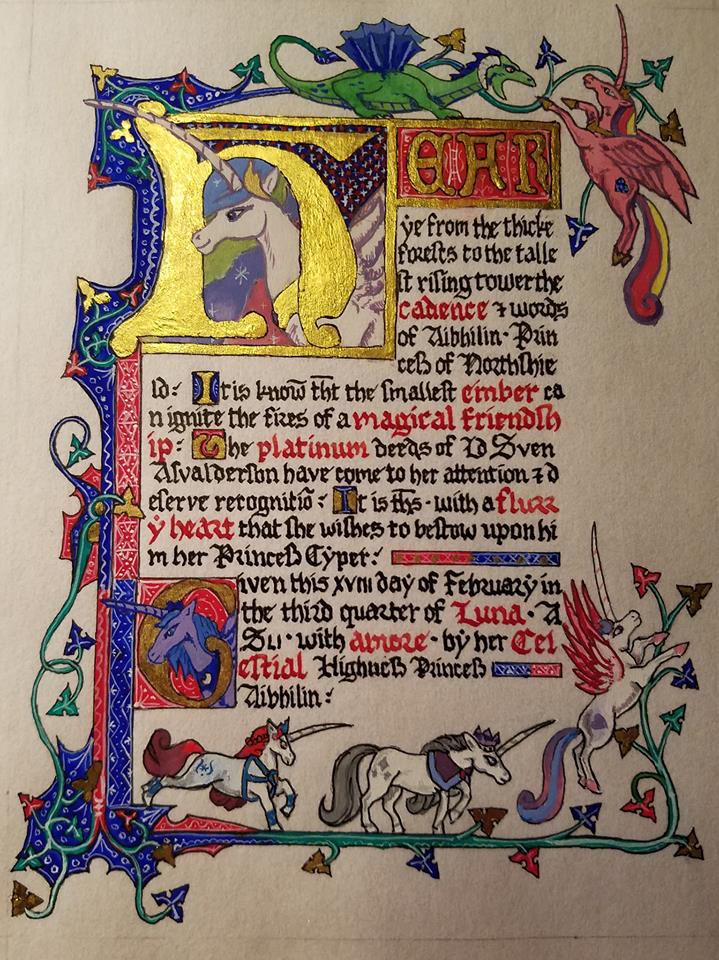 HEAR
ye from the thicke
forests to the talle
st rising tower the
cadence & words
of Aibhilin· Prin
cess of Northshie
ld: It is know̄ tht̄ the smallest ember ca
n ignite the fires of a magical friendsh
ip: The platinum deeds of Ld Sven
Asvalderson have come to her attention & d
eserve recognitiō: It is ths̄ · with a flurr
y heart that she wishes to bestow upon hi
m her Princess Typet:
Given this xviii day of February in
the third quarter of Luna · A
S · with amore · by her Cel
estial Highness Princess
Aibhilin: